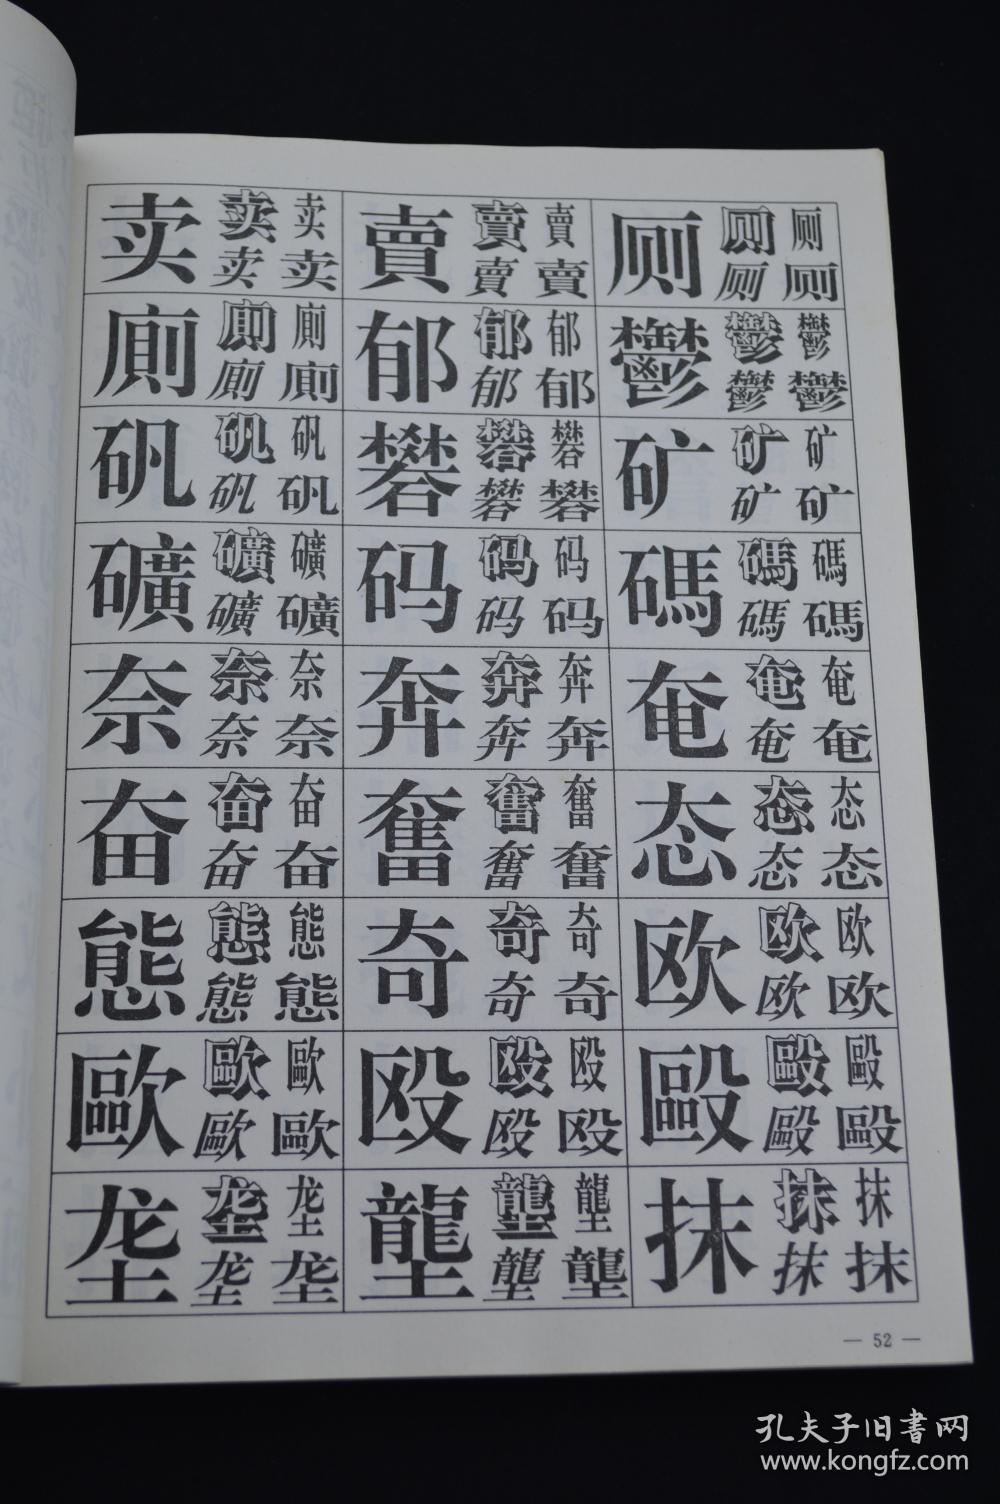 卖 卖 卖 賣 賣 賣 厕 厕 厕
卖 卖 賣 賣 厕 厕
廁 廁 廁 郁 郁 郁 鬱 鬱 鬱
廁 廁 郁 郁 鬱 鬱
矾 矾 矾 礬 礬 礬 矿 矿 矿
矾 矾 礬 礬 矿 矿
礦 礦 礦 码 码 码 碼 碼 碼
礦 礦 码 码 碼 碼
奈 奈 奈 奔 奔 奔 奄 奄 奄
奈 奈 奔 奔 奄 奄
奋 奋 奋 奮 奮 奮 态 态 态
奋 奋 奮 奮 态 态
態 態 態 奇 奇 奇 欧 欧 欧
態 態 奇 奇 欧 欧
歐 歐 歐 殴 殴 殴 毆 毆 毆
歐 歐 殴 殴 毆 毆
垄 垄 垄 壟 壟 壟 抹 抹 抹
垄 垄 壟 壟 抹 抹
— 52 —
孔夫子旧書网
www.kongfz.com